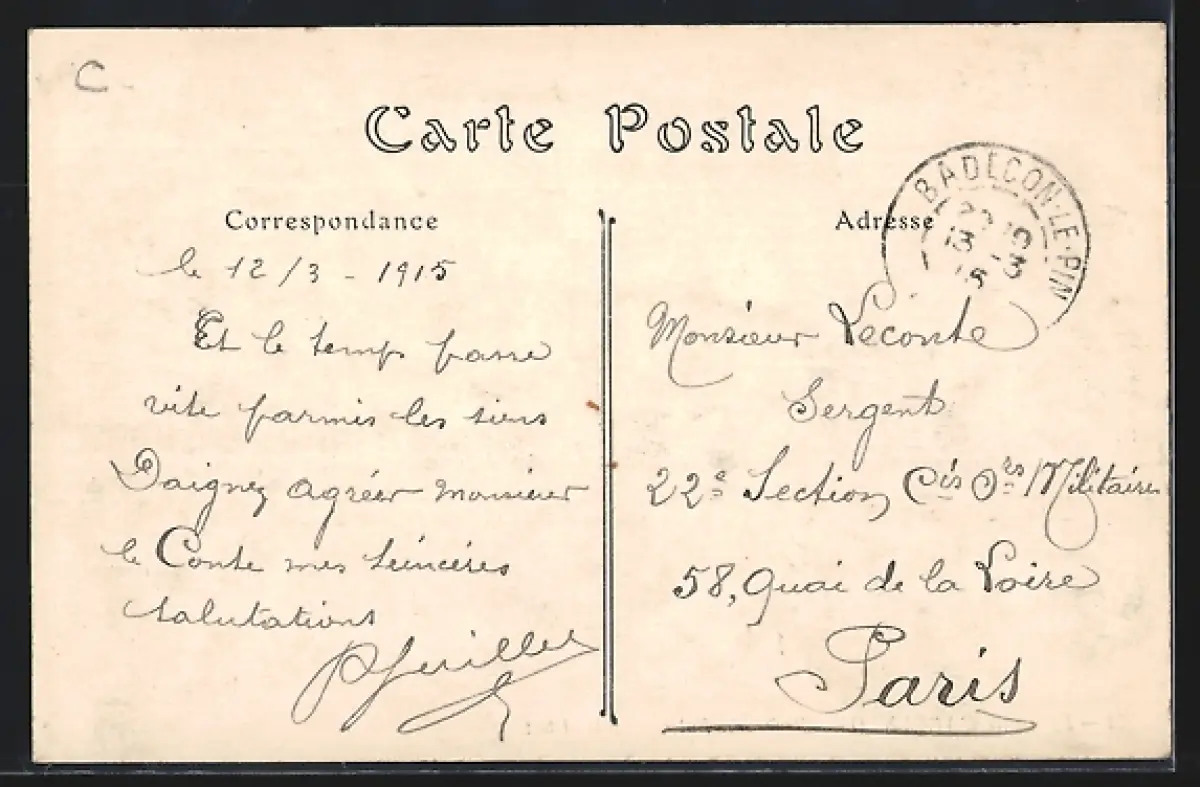 C
Carte Postale
Correspondance
le 12/3 - 1915
Et le temps passe
vite parmis les siens
Daignez agréer monsieur
le Conte mes seincères
salutations
Pfeuillet
Adresse
BADECON-LE-PIN
13 -3
15
Monsieur Leconte
Sergent
22e Section, Cis Ors Militaires
58, Quai de la Loire
Paris